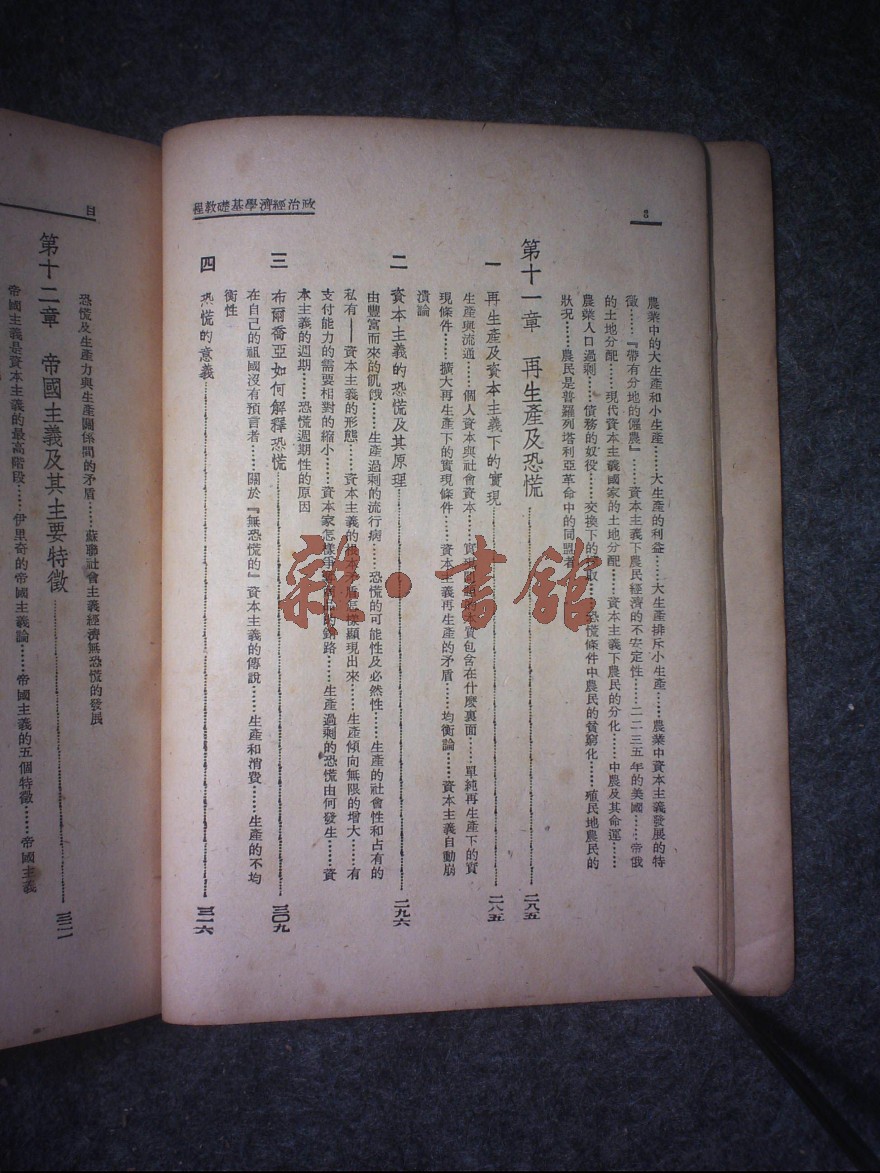 程教礎基學濟經治政
8
農業中的大生產和小生產……大生產的利益……大生產排斥小生產……農業中資本主義發展的特
徵……『帶有分地的僱農』……資本主義下農民經濟的不安定性……二二三五年的美國……帝俄
的土地分配……現代資本主義國家的土地分配……資本主義下農民的分化……中農及其命運……
農業人口過剩……債務的奴役……交換下的取……恐慌條件中農民的貧窮化……殖民地農民的
狀況……農民是普羅列塔利亞革命中的同盟者
第十一章 再生產及恐慌……二八五
一 再生產及資本主義下的實現……二八五
生產與流通……個人資本與社會資本……實現問題的本質包含在什麼裏面……單純再生產下的實
現條件……擴大再生產下的實現條件……資本主義再生產的矛盾……均衡論……資本主義自動崩
潰論
二 資本主義的恐慌及其原理……二九六
由豐富而來的飢餓……生產過剩的流行病……恐慌的可能性及必然性……生產的社會性和占有的
私有——資本主義的形態……資本主義的根本矛盾怎樣顯現出來……生產傾向無限的增大……有
支付能力的需要相對的縮小……資本家怎樣爭的銷路……生產過剩的恐慌由何發生……資
本主義的週期……恐慌週期性的原因
三 布爾喬亞如何解釋恐慌……三〇九
在自己的祖國沒有預言者……關於『無恐慌的』資本主義的傳說……生產和消費……生產的不均
衡性
四 恐慌的意義……三一六
目
恐慌及生產力與生產關係間的矛盾……蘇聯社會主義經濟無恐慌的發展
第十二章 帝國主義及其主要特徵……三二一
帝國主義是資本主義的最高階段……伊里奇的帝國主義論……帝國主義的五個特徵……帝國主義
雜·書館